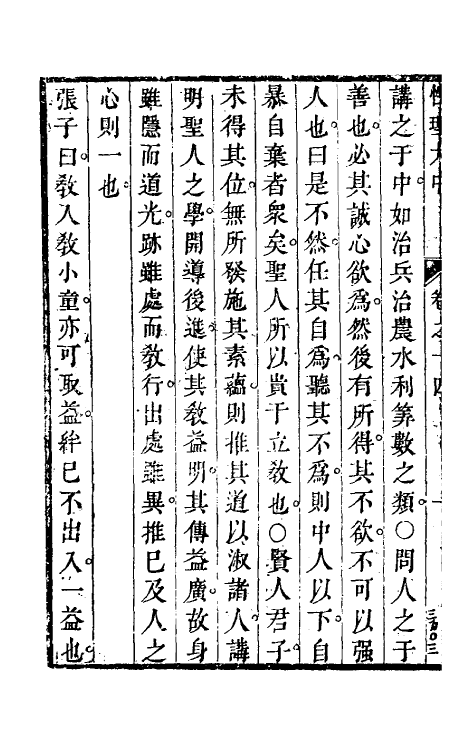 性理大中
卷之十四
講之于中如治兵治農水利筭數之類○問人之于
善也必其誠心欲爲然後有所得其不欲不可以强
人也曰是不然任其自爲聽其不爲則中人以下自
暴自棄者衆矣聖人所以貴于立敎也○賢人君子
未得其位無所發施其素蘊則推其道以淑諸人講
明聖人之學開導後進使其敎益明其傳益廣故身
雖隱而道光跡雖處而敎行出處雖異推已及人之
心則一也
張子曰敎人敎小童亦可取益絆已不出入一益也